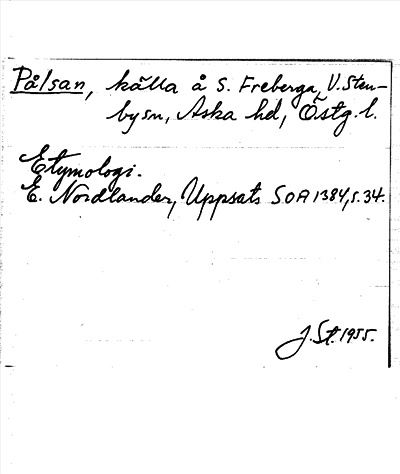 Pålsan, källa å S. Freberga, V. Sten-
bysn, Aska hd, Östg. l.
Etymologi.
E. Nordlander, Uppsats SOA 1384, s. 34.
J. St. 1955.